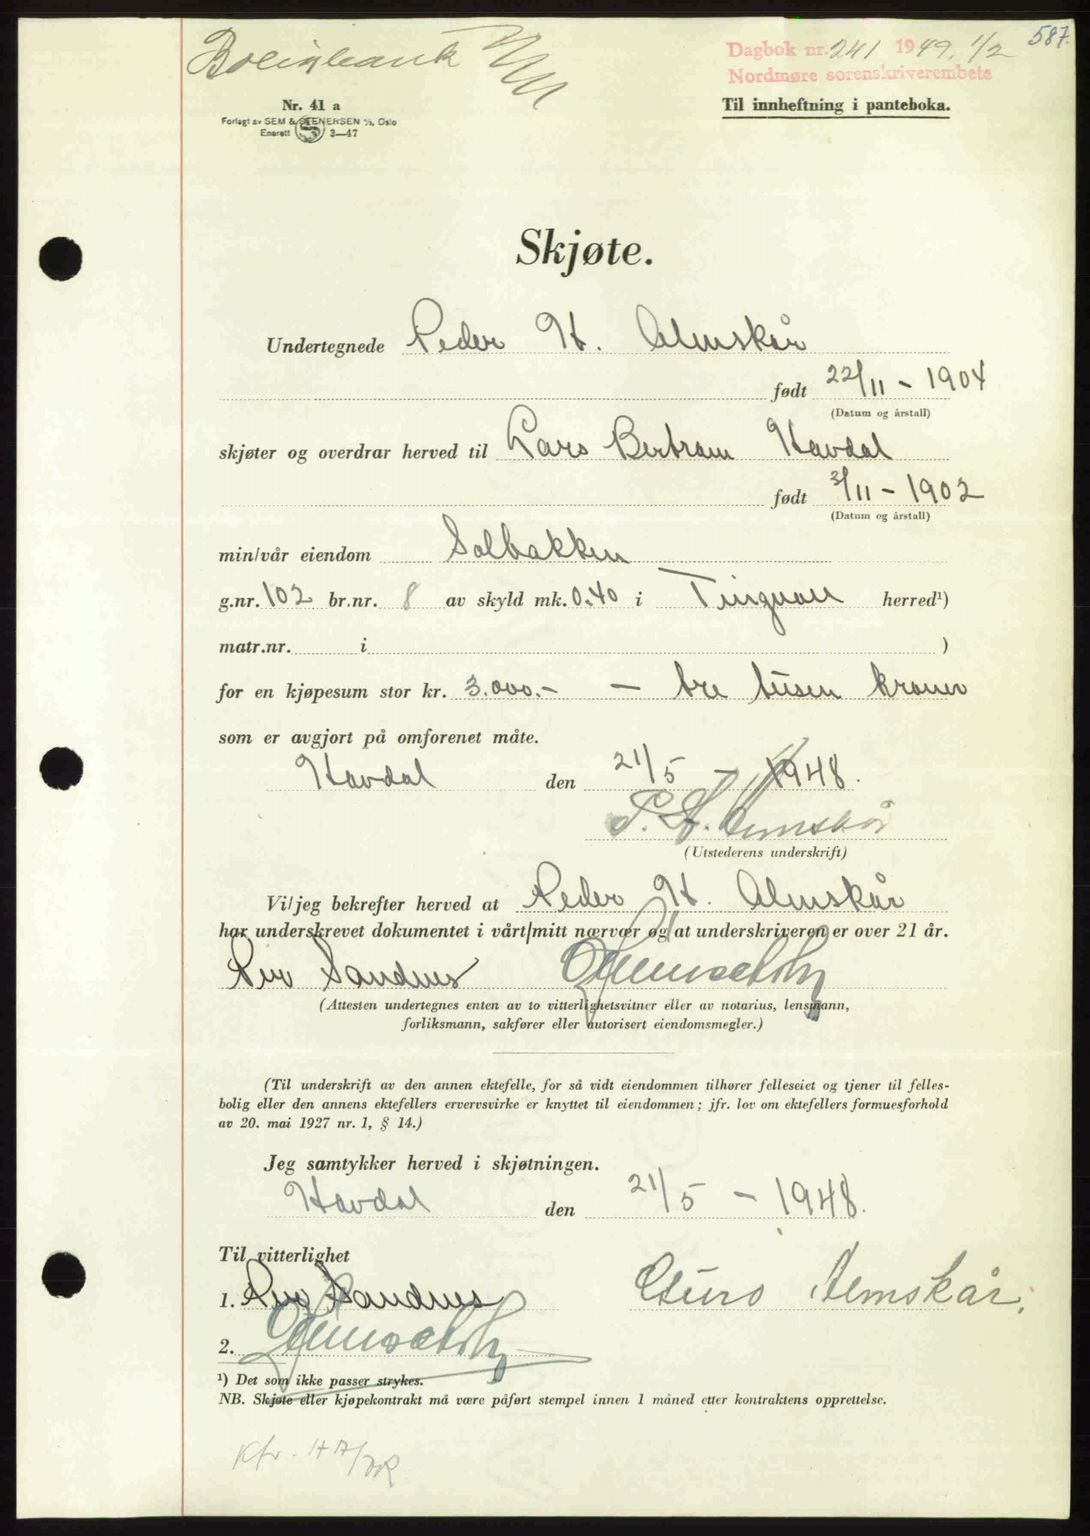 587.
Boligbank
Dagbok nr. 241 1949, 1/2
Nordmøre sorenskriverembete
Til innheftning i panteboka.
Nr. 41 a
Forlagt av SEM & STENERSEN A/S, Oslo
Enerett 3—47
Skjøte.
Undertegnede Peder H. Almskår
født 22/11 - 1904
(Datum og årstall)
skjøter og overdrar herved til Lars Bertram Havdal
født 3/11 - 1902
(Datum og årstall)
min/vår eiendom Solbakken
g.nr. 102 br.nr. 8 av skyld mk. 0.40 i Tingvoll herred¹)
matr.nr. i )
for en kjøpesum stor kr. 3.000.- — tre tusen kroner
som er avgjort på omforenet måte.
Havdal den 21/5 - 1948.
P. H. Almskår
(Utstederens underskrift)
Vi/jeg bekrefter herved at Peder H. Almskår
har underskrevet dokumentet i vårt/mitt nærvær og at underskriveren er over 21 år.
Per Sandnes
(Attesten undertegnes enten av to vitterlighetsvitner eller av notarius, lensmann,
forliksmann, sakfører eller autorisert eiendomsmegler.)
(Til underskrift av den annen ektefelle, for så vidt eiendommen tilhører felleseiet og tjener til felles-
bolig eller den annens ektefellers ervervsvirke er knyttet til eiendommen; jfr. lov om ektefellers formuesforhold
av 20. mai 1927 nr. 1, § 14.)
Jeg samtykker herved i skjøtningen.
Havdal den 21/5 - 1948.
Til vitterlighet
1. Per Sandnes Guro Almskår.
2.
¹) Det som ikke passer strykes.
NB. Skjøte eller kjøpekontrakt må være påført stempel innen 1 måned etter kontraktens opprettelse.